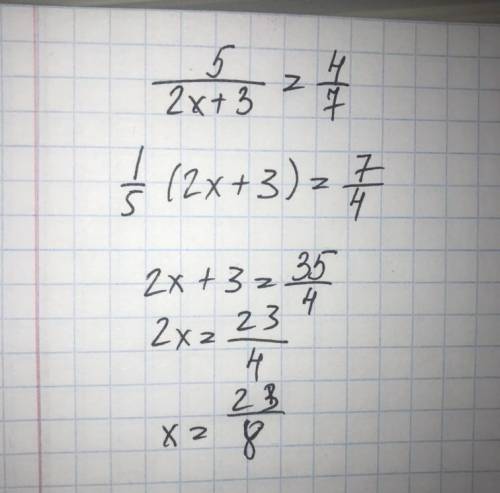 5/(2x+3) = 4/7
1/5 (2x+3) = 7/4
2x+3 = 35/4
2x = 23/4
x = 23/8